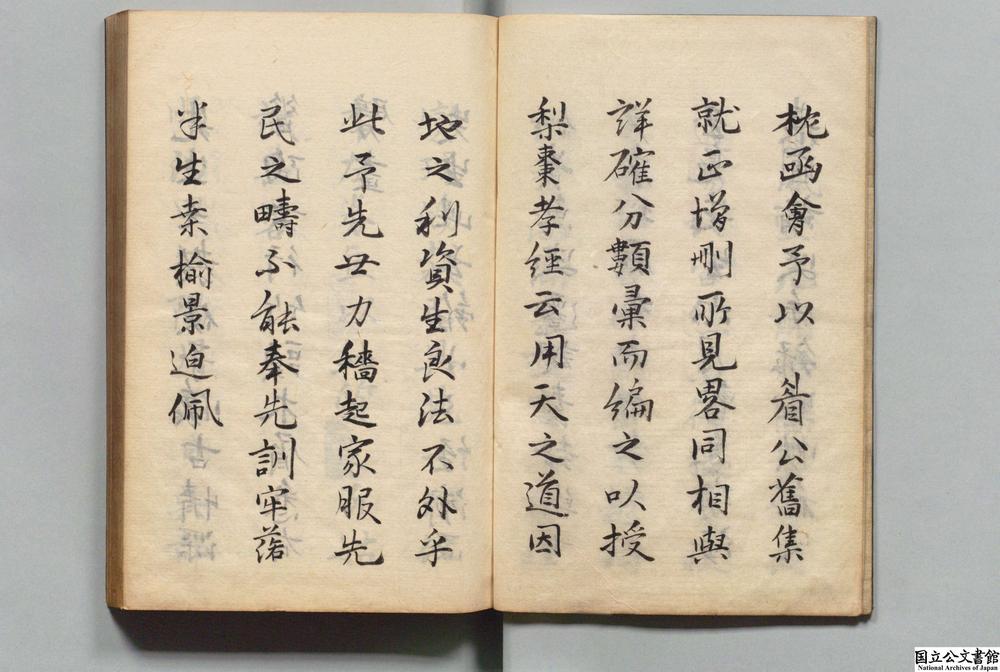 枕函會予以 眉公舊集
就正增刪所見畧同相與
詳確分類彙而編之以授
梨棗孝經云用天之道因
地之利資生良法不外乎
此予先世力穡起家服先
民之疇不能奉先訓牢落
半生桑榆景迫佩
国立公文書館
National Archives of Japan